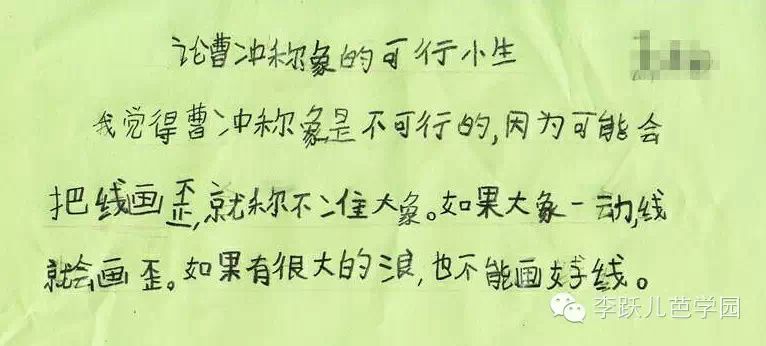 论曹冲称象的可行小生
我觉得曹冲称象是不可行的,因为可能会
把线画歪,就称不准大象。如果大象一动,线
就会画歪。如果有很大的浪,也不能画好线。
李跃儿芭学园